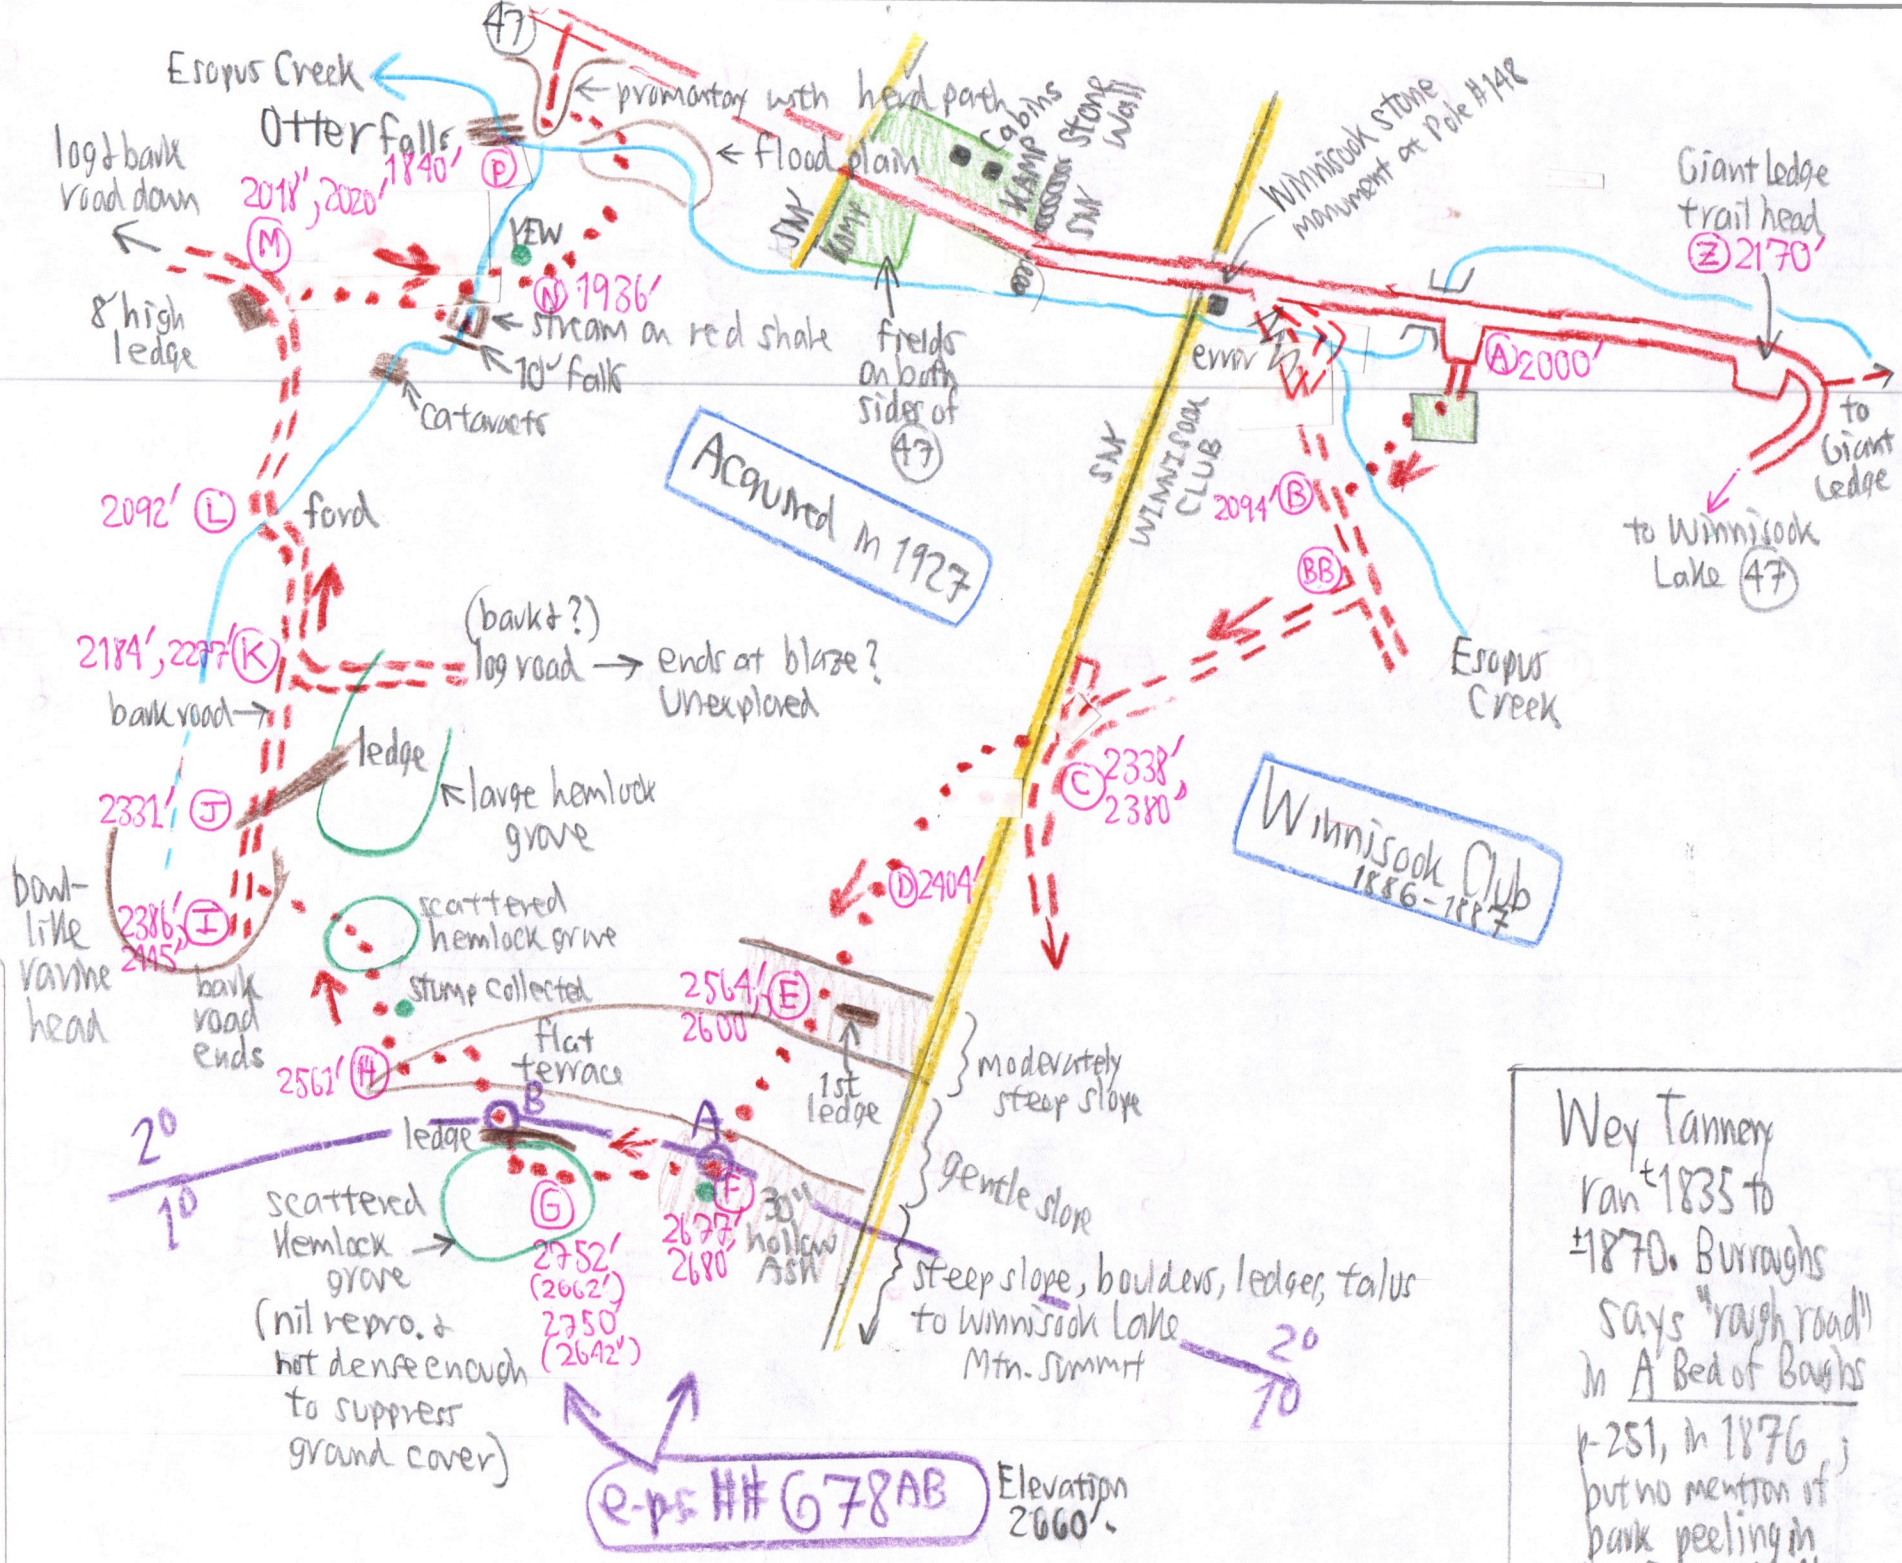 47
Esopus Creek
promontory with herd path
Otter falls
1840'
P
flood plain
Cabins
KAMP
Stone
Wall
SNY
SNY
KAMP
Winnisook stone
monument at Pole #148
Giant Ledge
trail head
Z 2170'
log & bark
road down
2018', 2020'
M
YEW
N 1936'
8' high
ledge
stream on red shale
10' falls
cataracts
fields
on both
sides of
47
error
A 2000'
to
Giant
Ledge
to Winnisook
Lake 47
SNY
WINNISOOK
CLUB
Acquired in 1927
2094' B
BB
Esopus
Creek
2092' L
ford
(bark & ?)
log road → ends at blaze?
Unexplored
2184', 2277' K
bark road →
ledge
large hemlock
grove
2331' J
C 2338',
2380'
Winnisook Club
1886-1887
D 2404'
bowl-
like
ravine
head
2386' I
2445'
bark
road
ends
scattered
hemlock grove
stump collected
2564', E
2600'
1st
ledge
moderately
steep slope
flat
terrace
2561' H
B
A
ledge
2°
1°
gentle slope
scattered
Hemlock
grove
(nil repro. &
not dense enough
to suppress
ground cover)
G
2752'
(2662')
2750'
(2642')
F
2677',
2680'
30"
hollow
ASH
steep slope, boulders, ledges, talus
to Winnisook Lake
Mtn. summit
2°
1°
e-ps ## 678AB
Elevation
2660'.
Wey Tannery
ran ±1835 to
±1870. Burroughs
says "rough road"
in A Bed of Boughs
p-251, in 1876;
but no mention of
bark peeling in